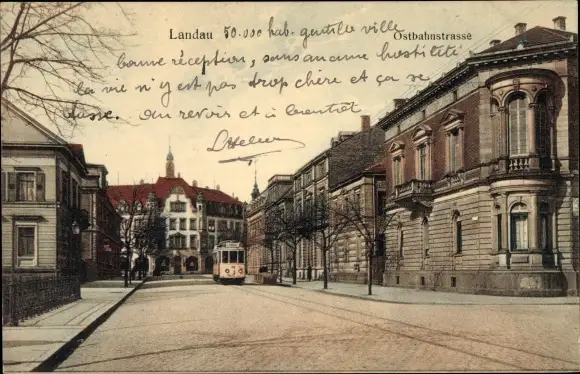 Landau 50.000 hab. gentille ville Ostbahnstrasse
bonne réception, sans aucune hostilité
La vie n'y est pas trop chère et ça se
tasse. Au revoir et à bientôt